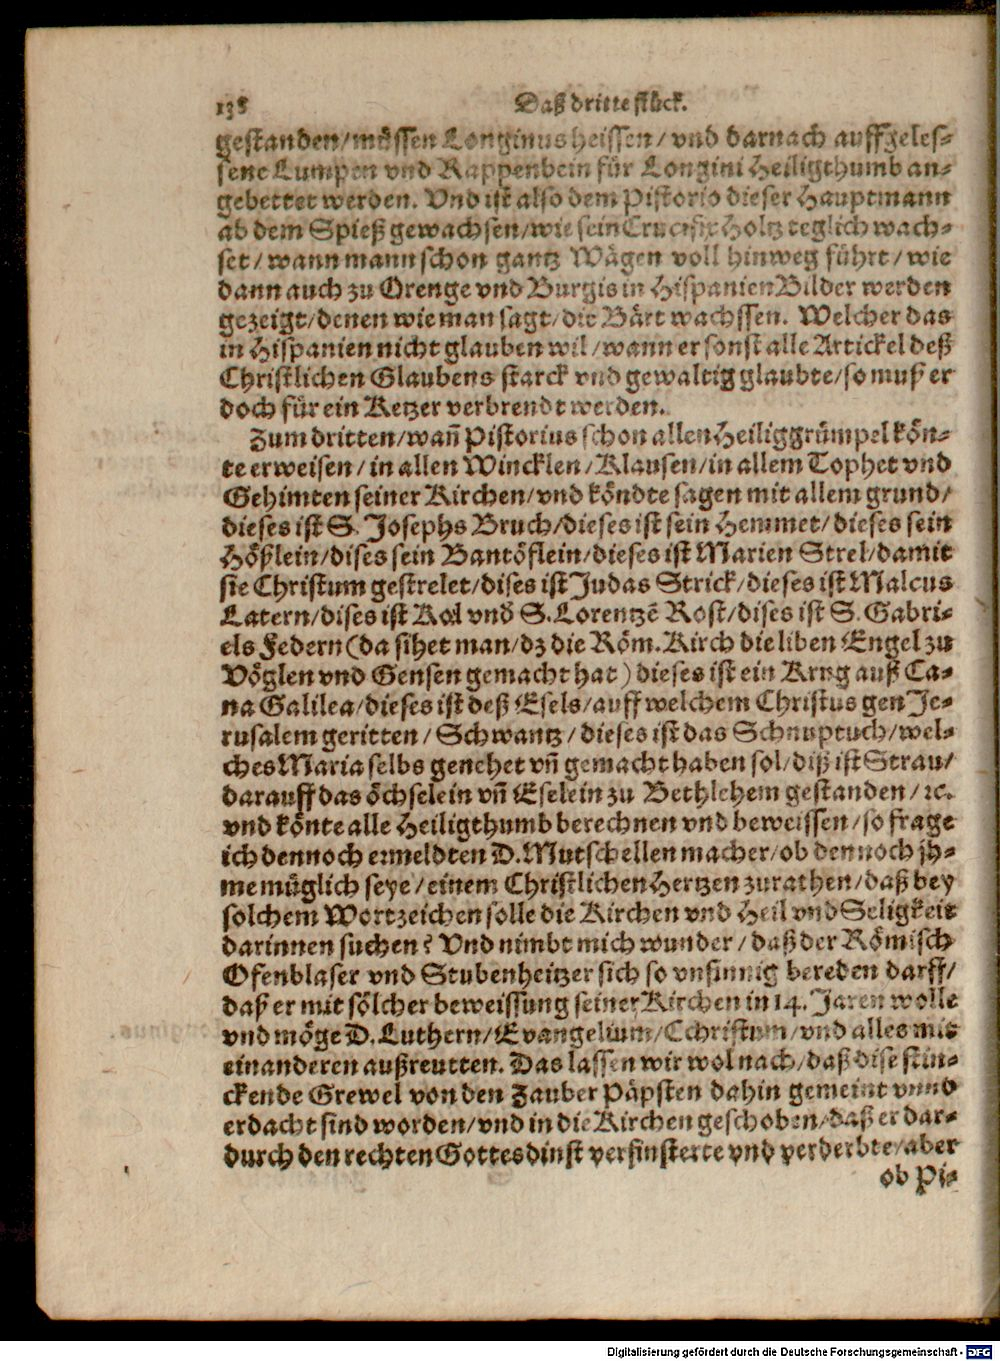 138 Daß dritte stück.
gestanden/müssen Longinus heissen/ vnd darnach auffgeles-
sene Lumpen vnd Rappenbein für Longini Heiligthumb an-
gebettet werden. Vnd ist also dem Pistorio dieser Hauptmann
ab dem Spieß gewachsen/wie sein Crucifix Holtz teglich wach-
set/ wann mann schon gantz Wägen voll hinweg führt/ wie
dann auch zu Orenge vnd Burgis in Hispanien Bilder werden
gezeigt/denen wie man sagt/die Bärt wachssen. Welcher das
in Hispanien nicht glauben wil/wann er sonst alle Artickel deß
Christlichen Glaubens starck vnd gewaltig glaubte/so muß er
doch für ein Ketzer verbrendt werden.
Zum dritten/wañ Pistorius schon allen Heiliggrümpel kön-
te erweisen/in allen Wincklen/Klausen/in allem Tophet vnd
Gehimten seiner Kirchen/vnd köndte sagen mit allem grund/
dieses ist S. Josephs Bruch/dieses ist sein Hemmet/dieses sein
Hößlein/dises sein Bantöflein/dieses ist Marien Strel/damit
sie Christum gestrelet/dises ist Judas Strick/dieses ist Malcus
Latern/dises ist Kol vnd S. Lorentzē Rost/dises ist S. Gabri-
els Federn (da sihet man/dz die Röm. Kirch die liben Engel zu
Vöglen vnd Gensen gemacht hat) dieses ist ein Krug auß Ca-
na Galilea/dieses ist deß Esels/auff welchem Christus gen Je-
rusalem geritten/ Schwantz/ dieses ist das Schnuptuch/wel-
ches Maria selbs genehet vñ gemacht haben sol/diß ist Strau/
darauff das öchselein vñ Eselein zu Bethlehem gestanden/ ꝛc.
vnd könte alle Heiligthumb berechnen vnd beweissen/so frage
ich dennoch ermeldten D. Mutschellenmacher/ob dennoch jh-
me müglich seye/einem Christlichen Hertzen zurathen/daß bey
solchem Wortzeichen solle die Kirchen vnd Heil vnd Seligkeit
darinnen suchen? Vnd nimbt mich wunder/ daß der Römisch
Ofenblaser vnd Stubenheitzer sich so vnsinnig bereden darff/
daß er mit sölcher beweissung seiner Kirchen in 14. Jaren wolle
vnd möge D. Luthern/Evangelium/Cchristum/vnd alles mit
einanderen außreutten. Das lassen wir wol nach/daß dise stin-
ckende Grewel von den Zauber Päpsten dahin gemeint vnnd
erdacht sind worden/vnd in die Kirchen geschoben/daß er dar-
durch den rechten Gottesdinst verfinsterte vnd verderbte/aber
ob Pi-
Digitalisierung gefördert durch die Deutsche Forschungsgemeinschaft - DFG